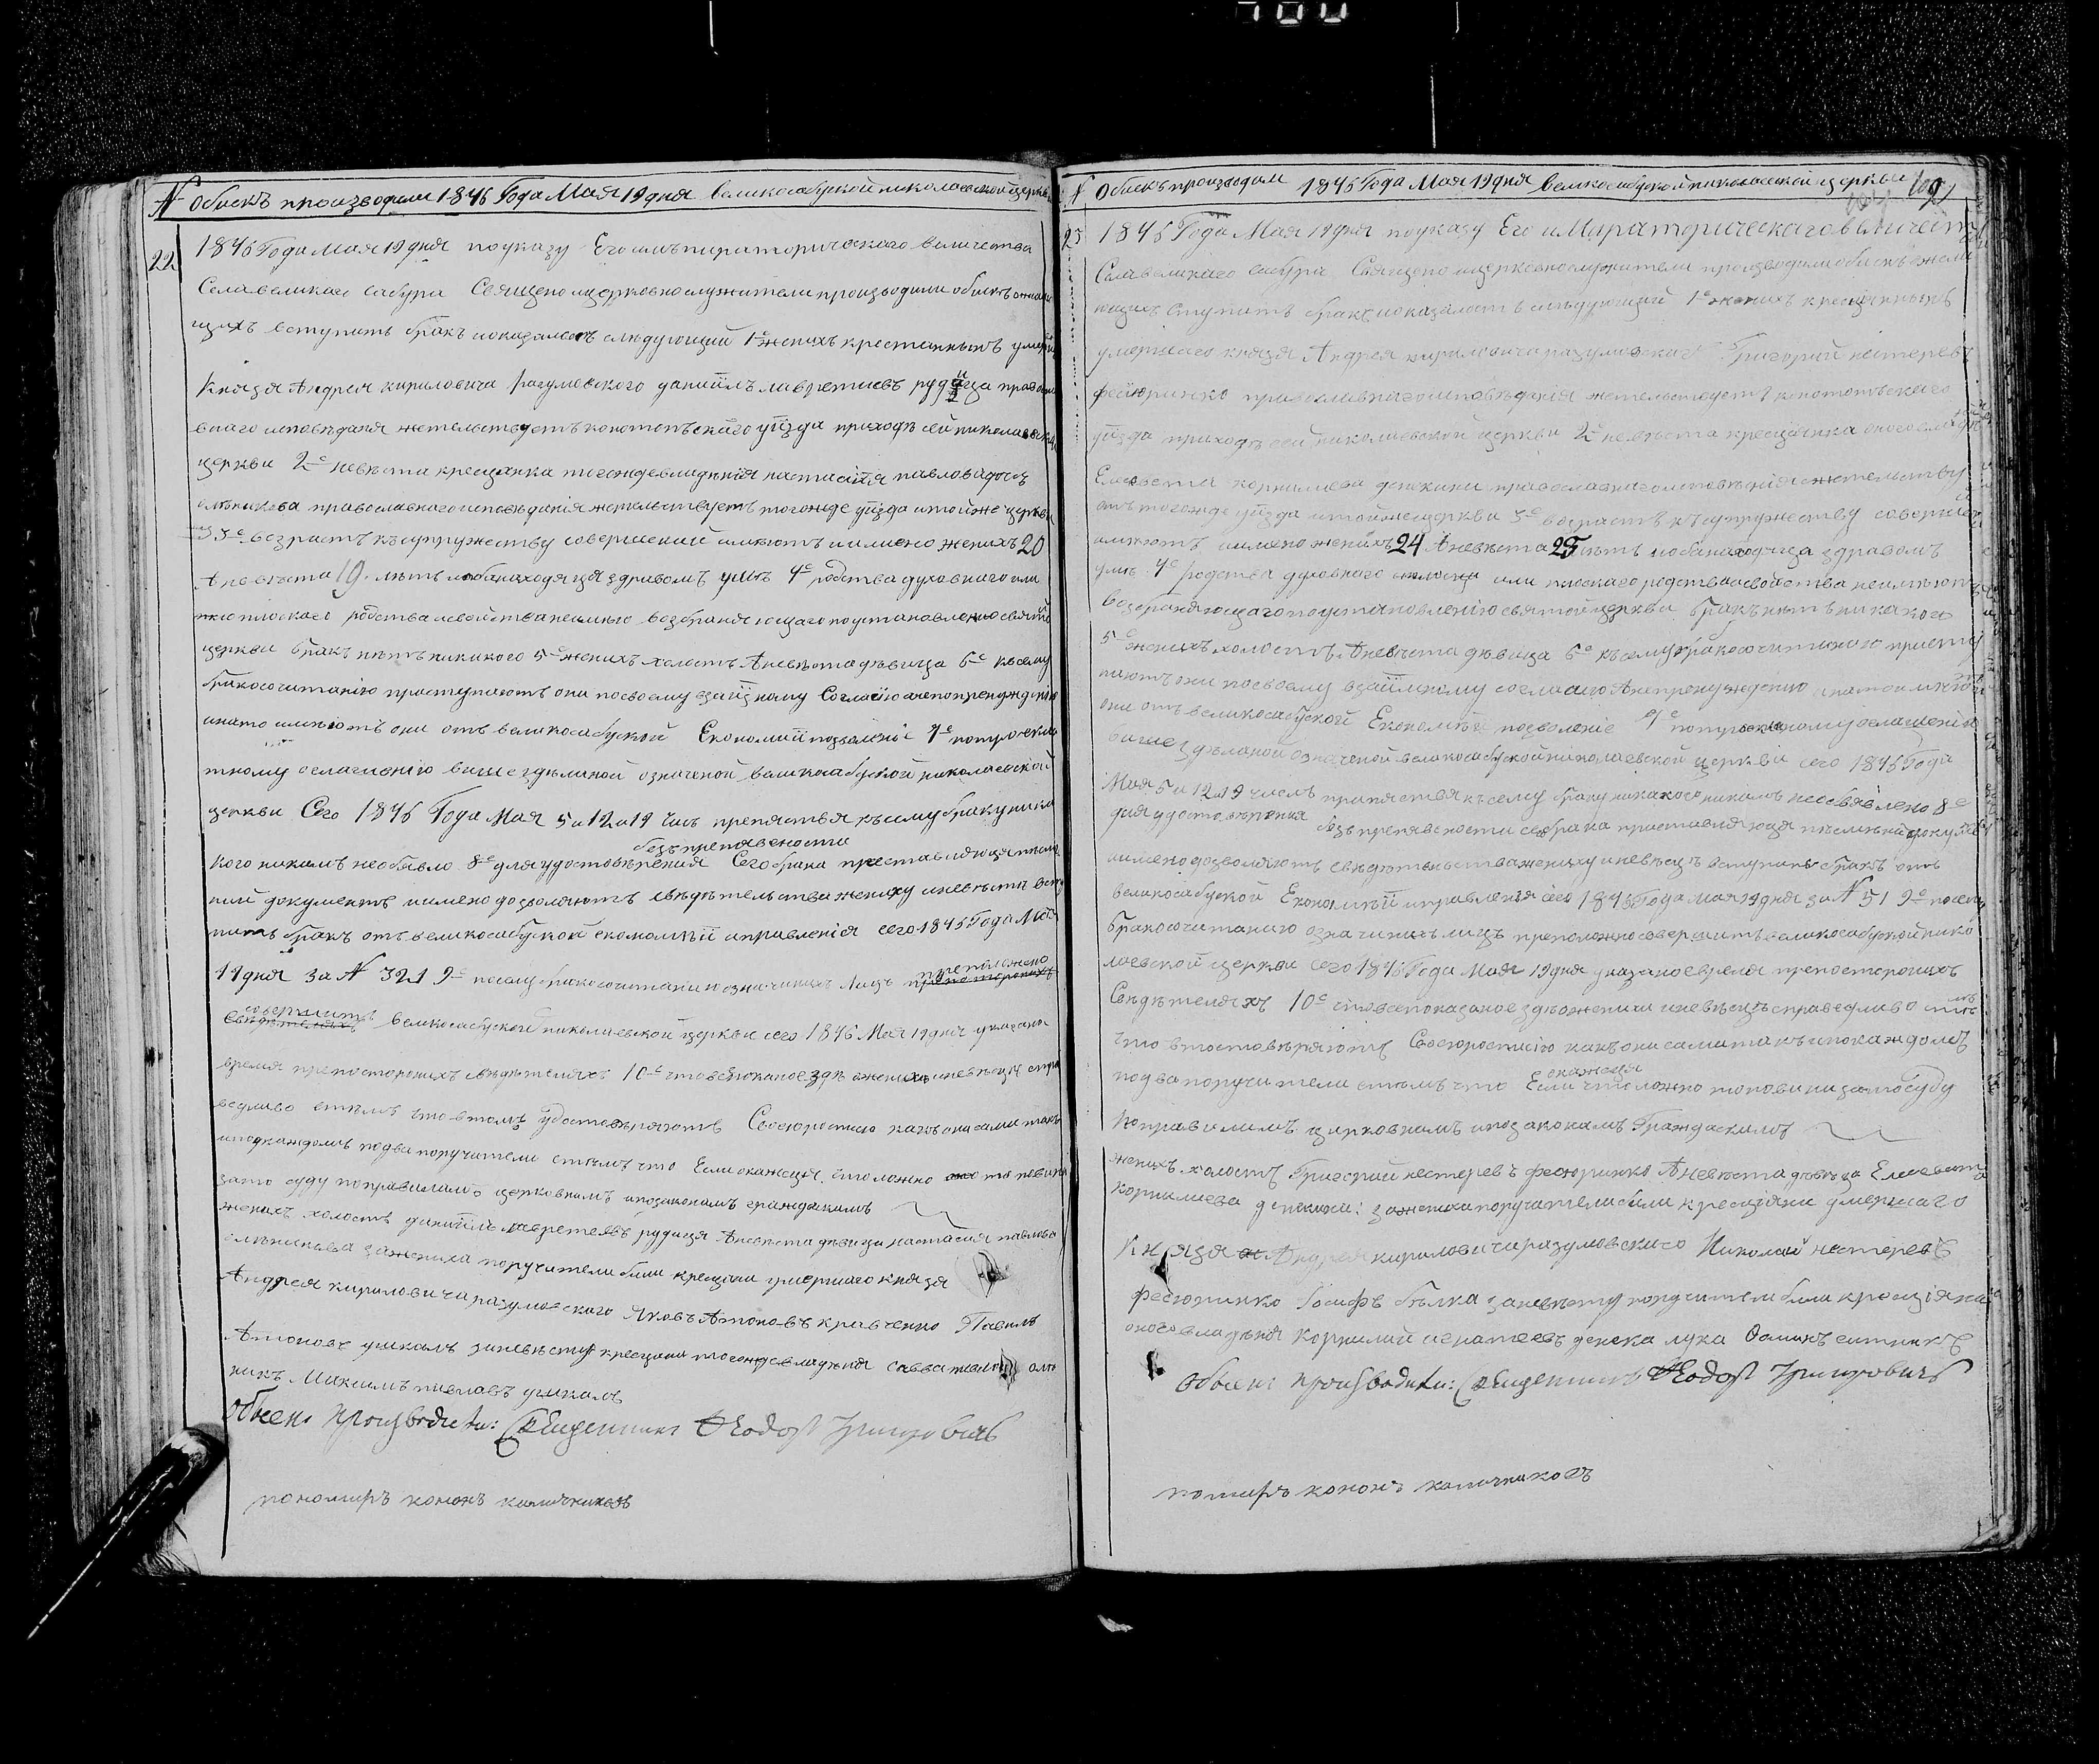 № Обискъ производили 1846 Года Мая 19 дня великосабуской николаевской церкви
22 1846 Года Мая 19 дня поуказу Его импираторическаго величества
Села великаго самбура Священо ицерковнослужители производили обискъ ожелаю
щихъ вступить бракъ ноказалось слядующий 1е женихъ крестянинъ умерш
Князя Андрея кириловича разумовского даниилъ лаврентиевъ рудица правосла
внаго исповѣданя жетельствуетъ конотопъскаго уѣзда приходъ сей николаевской
церкви 2е невѣста крещанка тогождевладѣнія настасия павлова
православнаго исповѣданія жетельствуетъ тогожде уѣзда итойже церкви
3е возрастъ къ супружеству совершений имѣютъ иимено женихъ 20
Аневѣста 19 лѣтъ иобанаходяця здравомъ умѣ 4е родства духовнаго или
плоскаго родства исвойства неимею возбраняющаго поустановлению святой
церкви бракъ нѣтъ никакого 5е женихъ холостъ Аневѣста дѣвица 6е къ сему
бракосочитанію приступаютъ они посвоему взаїмному Согласїю анепопренуждению
инато имѣютъ они отъ великосабуской Економїи позволеніе 7е потрое кра
тному оглашению више здѣланой означеной великосабуской николаевской
церкви Сего 1846 Года Мая 5 и 12 и 19 чисъ препяствя къ сему браку ника
безъпрепявсности
кого никимъ необявло 8е для удостовѣрения Сего брака преставляюця письме
ний документъ иимено дозволяютъ свѣдѣтельства жениху иневѣсти всту
пить бракъ отъ великосабуской економїи иправления сего 1846 Года Мая
19 дня за № 321 9е посему бракосочитанию означиныхъ Лицъ препосторонихъ преположено
свѣдѣтеляхъ совершить великосабуской николаевской церкви сего 1846 Мая 19 дня указана
время препосторонихъ свѣдѣтеляхъ 10е что всѣпоканое здѣ ожених иневѣсця спра
ведливо стѣмъ что втомъ удостовѣряютъ Своеюростисю какъ они сами такъ
ипокаждомъ подва поручители стѣмъ что Если окажеця что ложно то повини
зато суду поправиламъ церковнымъ ипозаконамъ гражданскимъ
женихъ холостъ даниилъ лаврентеевъ рудица Аневѣста дѣвица настасия павлова
зажениха поручители били крещани умершаго князя
Андрея кириловича разумовского Яковъ Атоновъ кравченко Павилъ
Атоновъ заневѣсту крещани тогождевладѣния савва
никъ Максимъ павловъ
Обыскъ производили: Священникъ Ѳеодос Григоровичъ
пономаръ кононъ калачниковъ
№ Обискъ производили 1846 Года Мая 19 дня великосабуской николаевской церкви
23 1846 Года Мая 19 дня поуказу Его иМпираторическаго величест
Села великаго самбура Священо ицерковнослужители производили обискъ ожела
ющихъ вступить бракъ ноказалость слѣдующий 1е женихъ крещянинъ
умершаго князя Андрея кириловича разумовскаго Григорий нестеревъ
федюринко православнаго исповѣданїя жетельствуетъ конотопъскаго
уѣзда приходъ сей николаевской церкви 2е невѣста крещанка оноговладѣ
Елисовета корнилева денекина православнаго исповѣнїя жетельству
етъ тогожде уѣзда итойже церкви 3е возрастъ къ супружеству соверше
имѣютъ иимено женихъ 24 Аневѣста 25 лѣтъ иобанаходяца здравомъ
умѣ 4е родства духовнаго или плоскаго родства исвойства неимѣютъ
возбраняющаго поустановлению святой церкви бракъ нѣтъ никакого
5е женихъ холостъ Аневѣста дѣвица 6е къ сему бракосочитаного присту
паютъ они посвоему взаїмному согласию Анепренуждению инатоимѣють
они отъ великосабуской Економѣй позволение 7е потроекратному оглашению
више здѣланой означеной великосабуской николаевской церкви сего 1846 Года
Мая 5 и 12 и 19 числъ препяствя къ сему браку никакого никимъ необявлено 8е
для удостовѣрения безъ препявсности сего брака преставляюця писмений докумѣ
иимено дозволяютъ свѣдѣтельства жениху иневѣсцѣ вступить бракъ отъ
великосабуской Економѣй иправления сего 1846 Года мая 19 дня за № 51 9е посему
бракосочитанию означиныхъ лицъ преположно совершить великосабуской нико
лаевской церкви сего 1846 Года Мая 19 дня указаное время препосторонихъ
Свѣдѣтеляхъ 10е что всепоказаное здѣ оженихи иневѣсцѣ справедливо стѣмъ
что втостовѣряютъ Своеюростисію какъ они сами такъ ипокаждомъ
подва поручители стѣмъ что Если окажеця что ложно то повини зато суду
поправилимъ церковнымъ ипозаконамъ Гражданскимъ
женихъ холостъ Григорий нестеревъ федюринко Аневѣста дѣвѣца Елисовета
корнилиева денекина: зажениха поручители били крещяни умершаго
Князя Андрея кириловича разумовскаго Николай нестеревъ
федюринко Иосифъ бѣлка заневѣсту поручители били крещіяне
оноговладѣня корнилий игнатеевъ денека лука
Обыскъ производили: Священникъ Ѳеодос Григоровичъ
помаръ кононъ калачниковъ